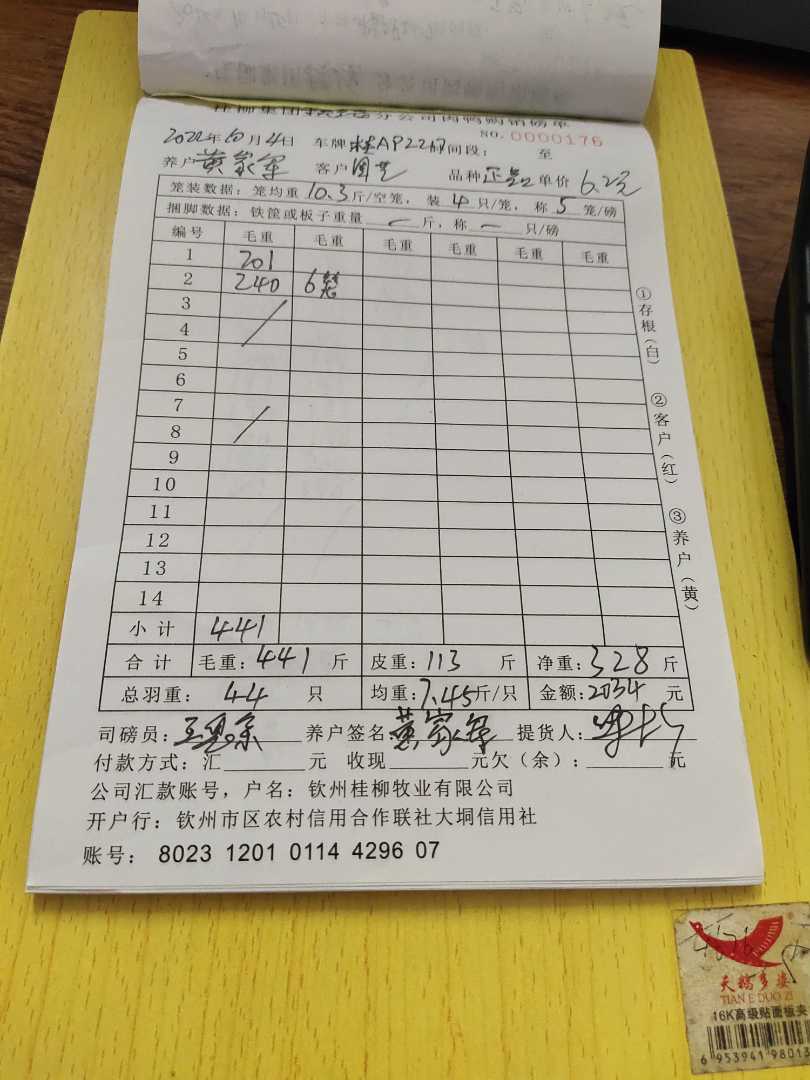 NO. 0000176
2022年10月4日 车牌桂AP22 时间段： 至
养户黄家军 客户周艺 品种正品 单价6.2元
笼装数据：笼均重10.3斤/空笼，装4只/笼，称5笼/磅
捆脚数据：铁筐或板子重量 一 斤，称 一 只/磅
编号 毛重 毛重 毛重 毛重 毛重 毛重
1 201
2 240 6笼
3
4
5
6
7
8
9
10
11
12
13
14
小计 441
合计 毛重：441 斤 皮重：113 斤 净重：328 斤
总羽重： 44 只 均重：7.45斤/只 金额：2034 元
司磅员： 养户签名黄家军 提货人：
付款方式：汇 元 收现 元欠（余）： 元
公司汇款账号，户名：钦州桂柳牧业有限公司
开户行：钦州市区农村信用合作联社大垌信用社
账号： 8023 1201 0114 4296 07
①存根（白）
②客户（红）
③养户（黄）
天鹅多姿
TIAN E DUO ZI
16K高级贴面板夹
6 953941 98013